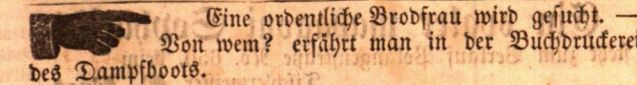 Eine ordentliche Brodfrau wird gesucht. —
Von wem? erfährt man in der Buchdruckerei
des Dampfboots.